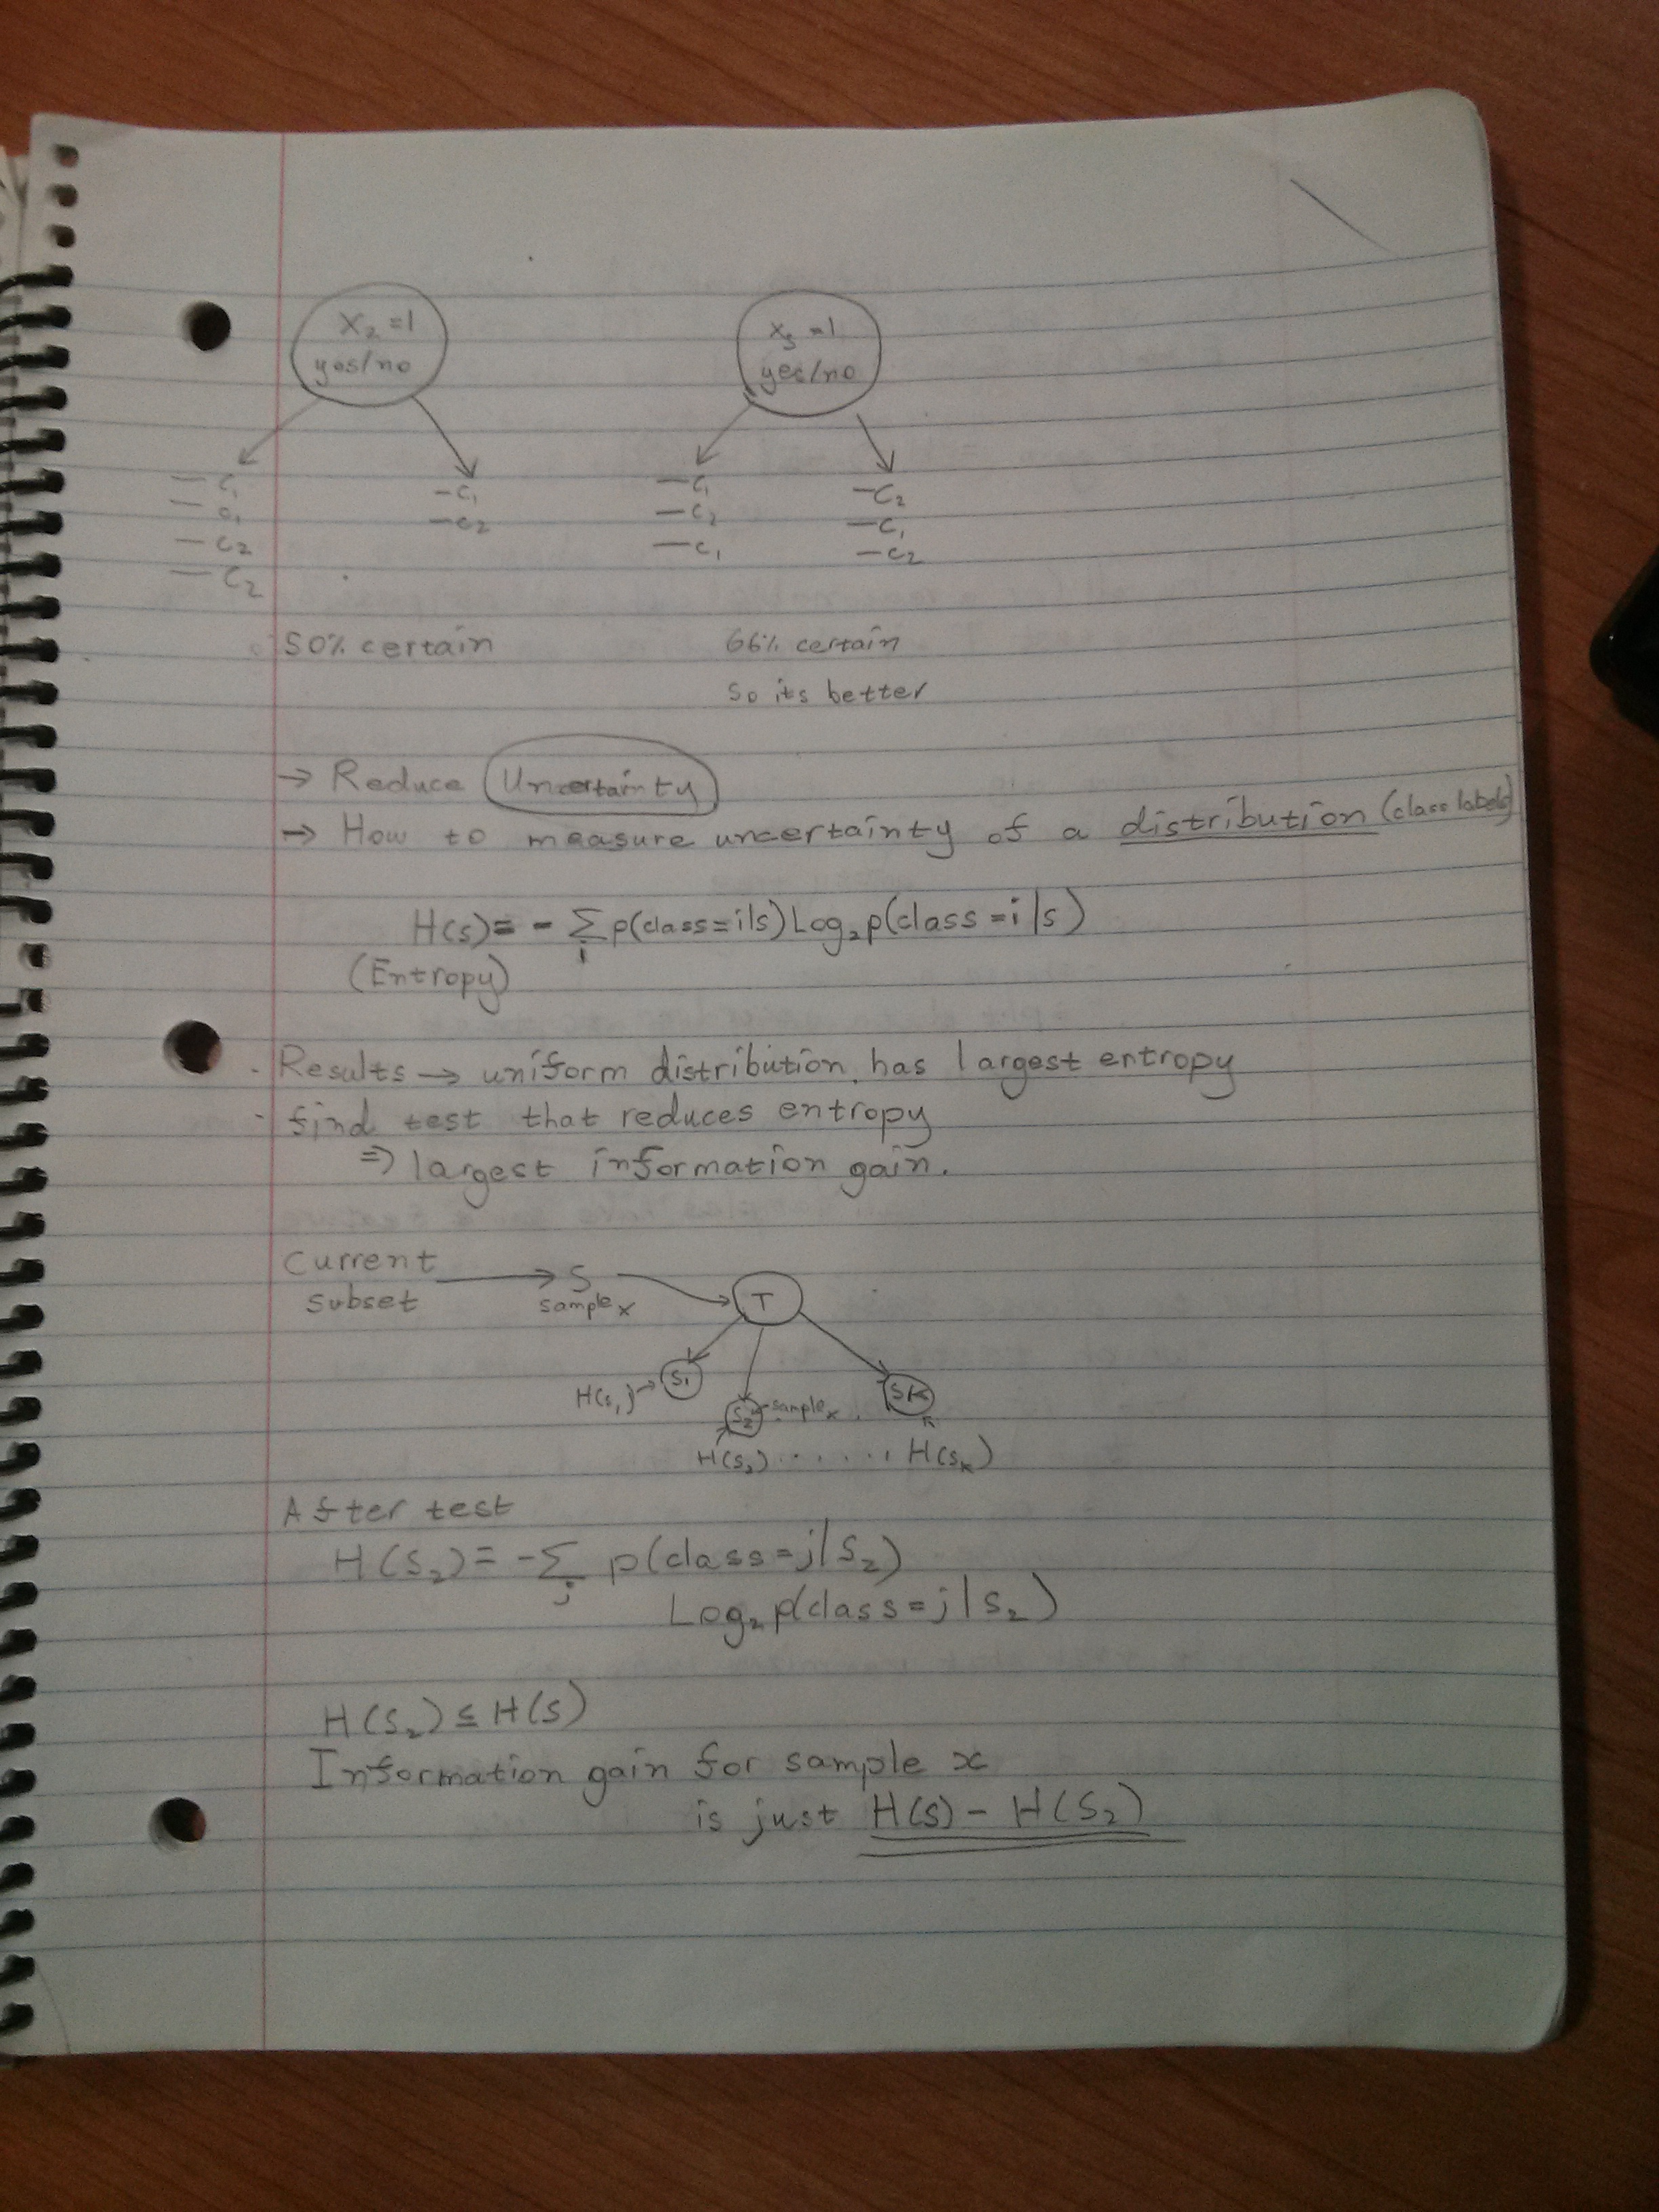 x₂=1
yes/no
x₅=1
yes/no
— c₁
— c₁
— c₂
— c₂
– c₁
– c₂
— c₁
— c₂
— c₁
– c₂
– c₁
– c₂
50% certain
66% certain
So its better
→ Reduce Uncertainty
→ How to measure uncertainty of a distribution (class labels)
H(s) = - Σᵢ p(class=i|s) Log₂ p(class=i|s)
(Entropy)
. Results → uniform distribution has largest entropy
- find test that reduces entropy
⇒ largest information gain.
Current
subset → S → T
sample x
H(s₁) → S₁
S₂ ← sample x
SK
H(S₂) ...... H(Sₖ)
After test
H(S₂) = - Σⱼ p(class=j|S₂)
Log₂ p(class=j|S₂)
H(S₂) ≤ H(S)
Information gain for sample x
is just H(S) - H(S₂)